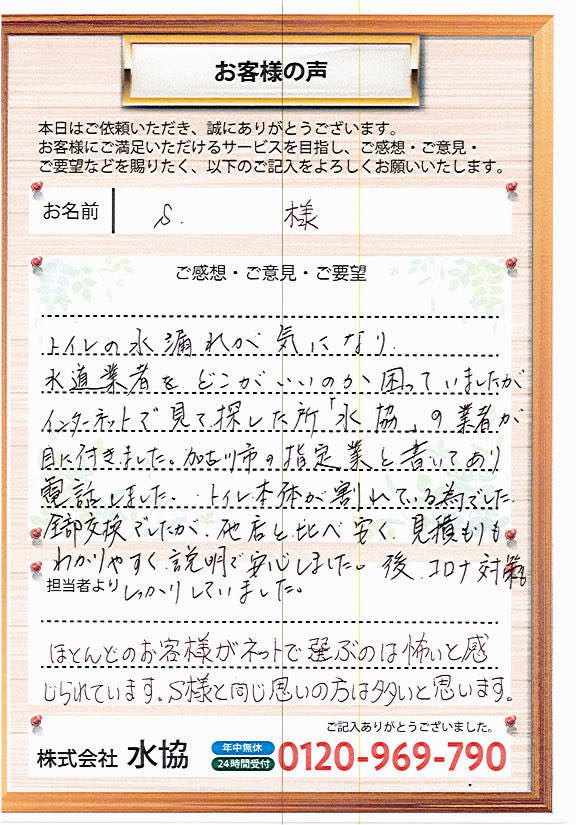 お客様の声
本日はご依頼いただき、誠にありがとうございます。
お客様にご満足いただけるサービスを目指し、ご感想・ご意見・
ご要望などを賜りたく、以下のご記入をよろしくお願いいたします。
お名前 S. 様
ご感想・ご意見・ご要望
トイレの水漏れが気になり
水道業者をどこがいいのか困っていましたが
インターネットで見て探した所「水協」の業者が
目に付きました。加古川市の指定業と書いてあり
電話しました、トイレ本体が割れている為でした。
全部交換でしたが、他店と比べ安く、見積もりも
わかりやすく説明で安心しました。後、コロナ対策も
しっかりしていました。
担当者より
ほとんどのお客様がネットで選ぶのは怖いと感
じられています。S様と同じ思いの方は多いと思います。
ご記入ありがとうございました。
株式会社 水協 年中無休 24時間受付 0120-969-790